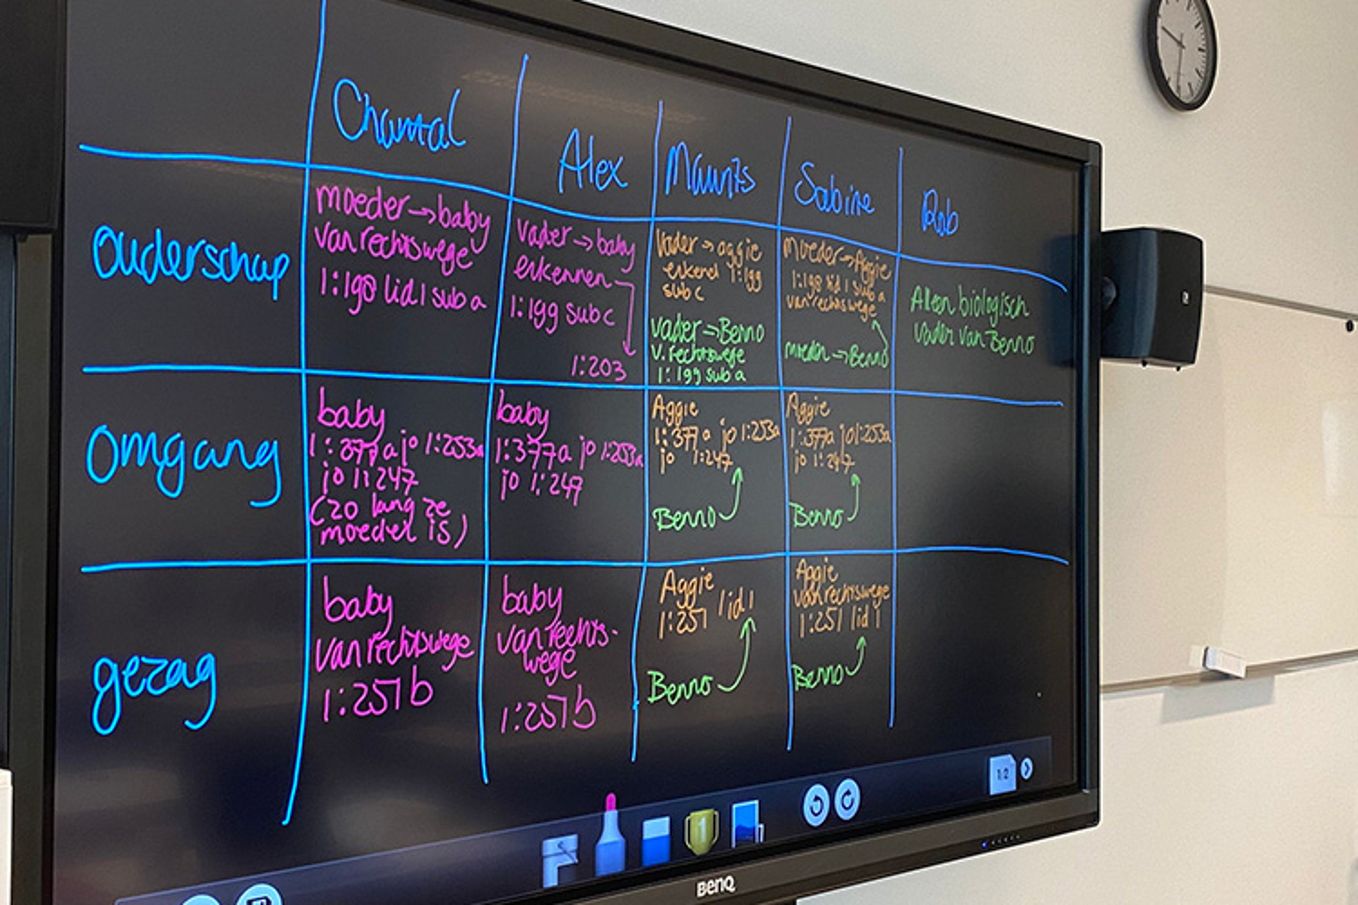 Chantal
Alex
Maurits
Sabine
Rob
Ouderschap
moeder → baby
van rechtswege
1:198 lid 1 sub a
vader → baby
erkennen
1:199 sub c
1:203
Vader → aggie
erkend 1:199
sub c
vader → Benno
v. rechtswege
1:199 sub a
moeder → Aggie
1:198 lid 1 sub a
van rechtswege
moeder → Benno
Alleen biologisch
vader van Benno
Omgang
baby
1:377a jo 1:253a
jo 1:247
(zo lang ze
moeder is)
baby
1:377a jo 1:253a
jo 1:247
Aggie
1:377a jo 1:253a
jo 1:247
Benno
Aggie
1:377a jo 1:253a
jo 1:247
Benno
gezag
baby
van rechtswege
1:251b
baby
van rechts-
wege
1:251b
Aggie
1:251 lid 1
Benno
Aggie
van rechtswege
1:251 lid 1
Benno
1
1/2
BenQ